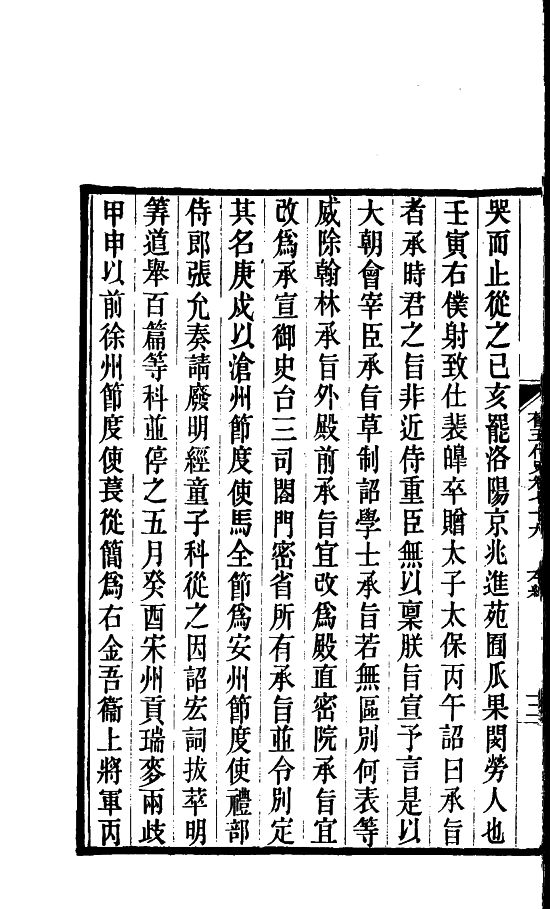 哭而止從之已亥罷洛陽京兆進苑囿瓜果閔勞人也
壬寅右僕射致仕裴皥卒贈太子太保丙午詔曰承旨
者承時君之旨非近侍重臣無以稟朕旨宣予言是以
大朝會宰臣承旨草制詔學士承旨若無區別何表等
威除翰林承旨外殿前承旨宜改爲殿直密院承旨宜
改爲承宣御史台三司閣門密省所有承旨並令別定
其名庚戌以滄州節度使馬全節爲安州節度使禮部
侍郎張允奏請廢明經童子科從之因詔宏詞拔萃明
筭道舉百篇等科並停之五月癸酉宋州貢瑞麥兩歧
甲申以前徐州節度使萇從簡爲右金吾衞上將軍丙